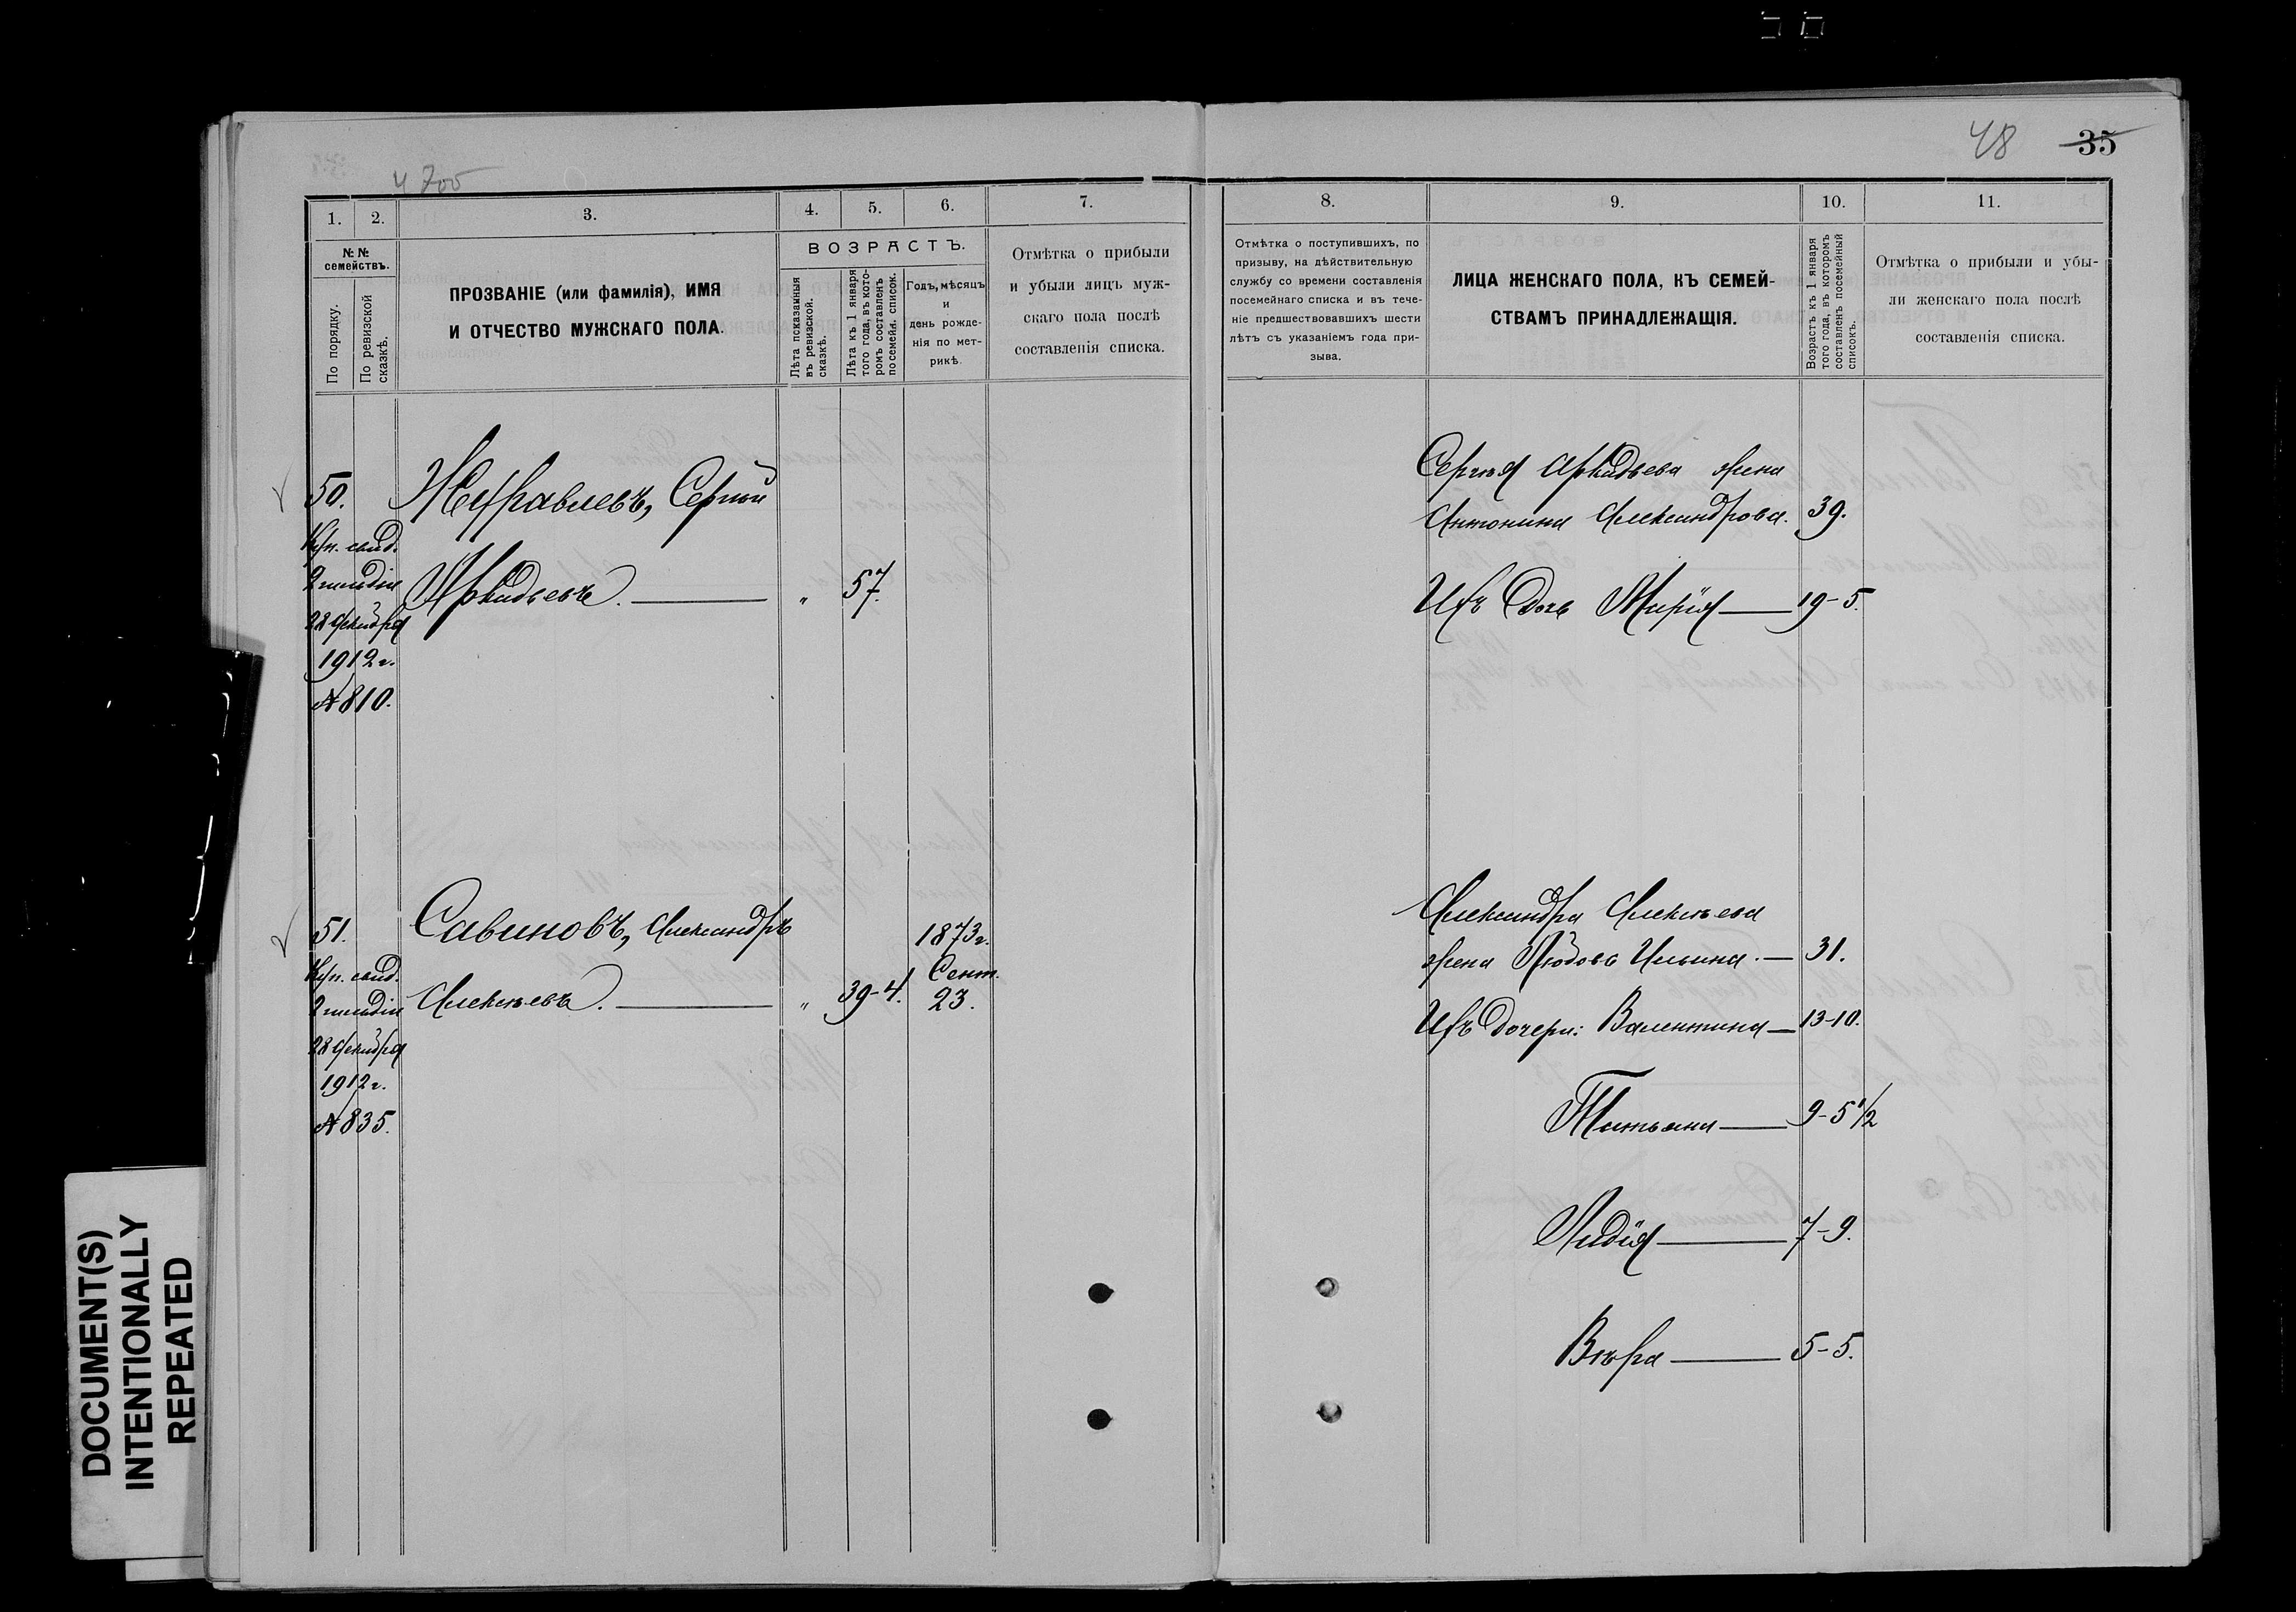 48 35
4 700
1. 2. 3. 4. 5. 6. 7.
№ № семействъ.
По порядку.
По ревизской сказкѣ.
ПРОЗВАНІЕ (или фамилія), ИМЯ
И ОТЧЕСТВО МУЖСКАГО ПОЛА.
ВОЗРАСТЪ.
Лѣта показанныя
въ ревизской
сказкѣ.
Лѣта къ 1 января
того года, въ кото-
ромъ составленъ
посемейн. список.
Годъ, мѣсяцъ
и
день рожде-
нія по мет-
рикѣ.
Отмѣтка о прибыли
и убыли лицъ муж-
скаго пола послѣ
составленія списка.
50. Журавлевъ, Сергѣй
Куп. свид.
2 гильдіи Аркадьевъ. — „ 57.
28 декабря
1912 г.
№ 810.
51. Савиновъ, Александръ 1873 г.
Куп. свид. Сент.
2 гильдіи Алексѣевъ. — „ 39-4. 23.
28 декабря
1912 г.
№ 835.
8. 9. 10. 11.
Отмѣтка о поступившихъ, по
призыву, на дѣйствительную
службу со времени составленія
посемейнаго списка и въ тече-
ніе предшествовавшихъ шести
лѣтъ съ указаніемъ года при-
зыва.
ЛИЦА ЖЕНСКАГО ПОЛА, КЪ СЕМЕЙ-
СТВАМЪ ПРИНАДЛЕЖАЩІЯ.
Возрастъ къ 1 января
того года, въ которомъ
составленъ посемейный
списокъ.
Отмѣтка о прибыли и убы-
ли женскаго пола послѣ
составленія списка.
Сергѣя Аркадьева жена
Антонина Александрова. 39.
Ихъ дочь Марія — 19-5.
Александра Алексѣева
жена Любовь Ильина. — 31.
Ихъ дочери: Валентина — 13-10.
Татьяна — 9-5½
Лидія — 7-9.
Вѣра — 5-5.
DOCUMENT(S)
INTENTIONALLY
REPEATED